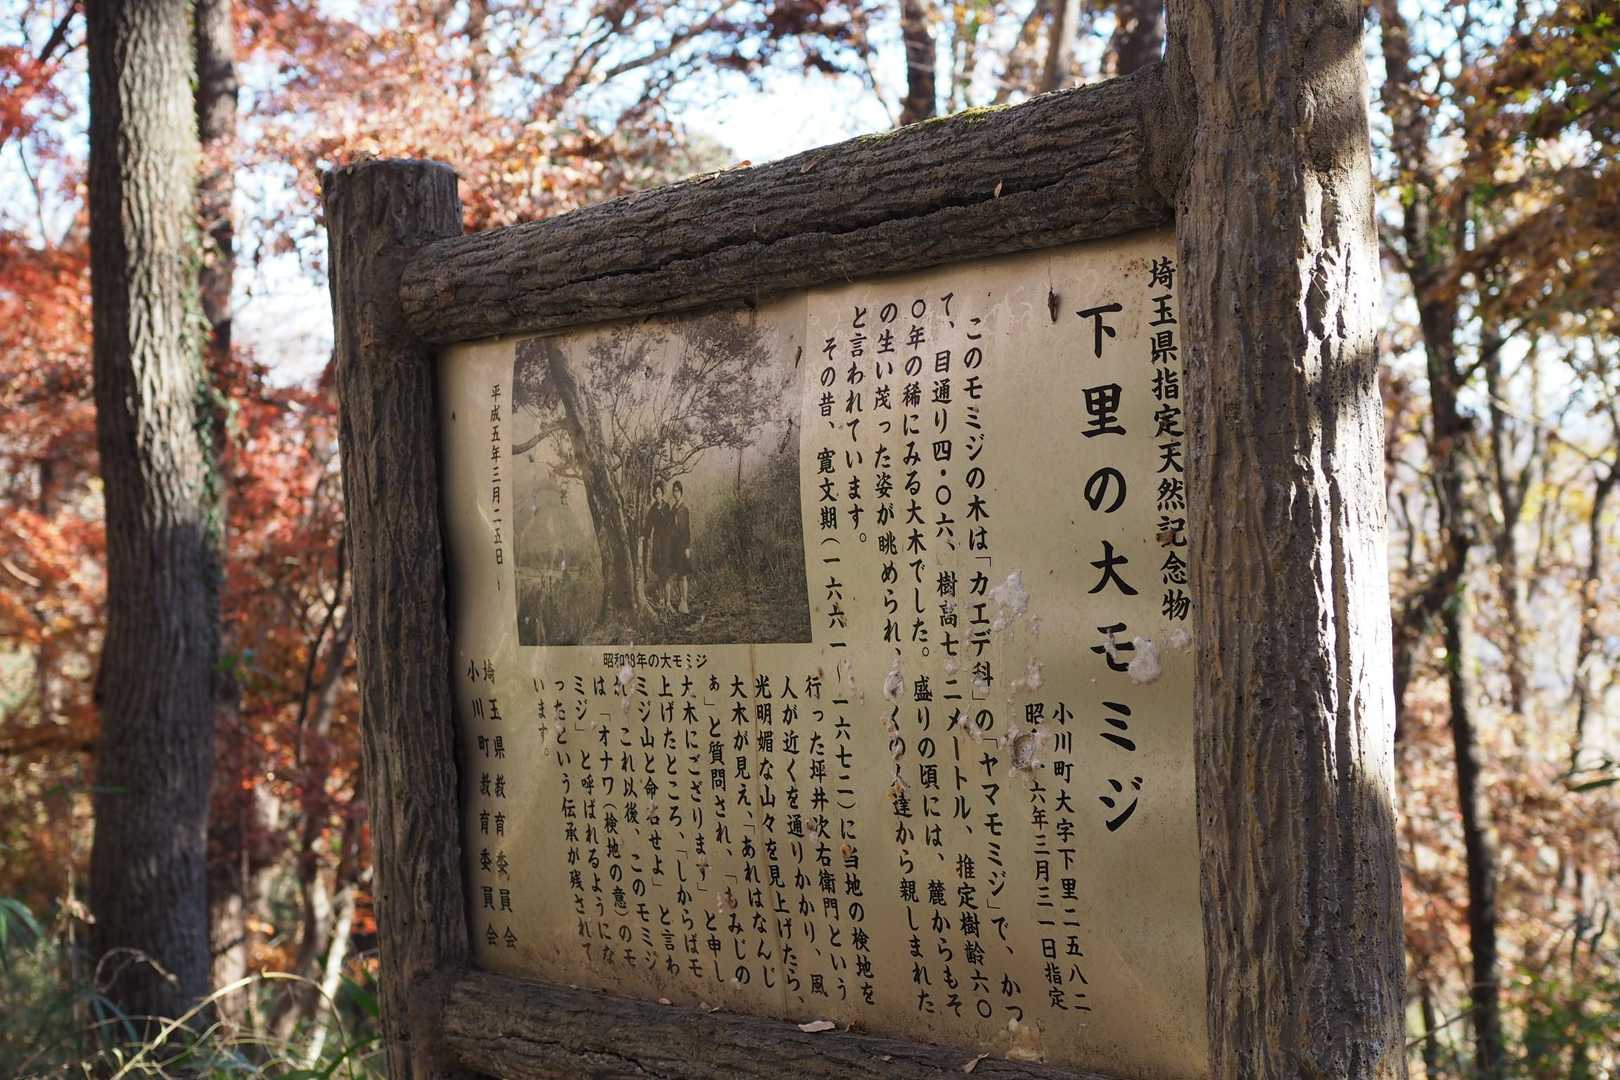 埼玉県指定天然記念物
下里の大モミジ
小川町大字下里二五八二
昭 六年三月三一日指定
このモミジの木は「カエデ科」の「ヤマモミジ」で、かつ
て、目通り四・〇六、樹高七・二メートル、推定樹齢六〇
〇年の稀にみる大木でした。盛りの頃には、麓からもそ
の生い茂った姿が眺められ、 くの人達から親しまれた
と言われています。
その昔、寛文期(一六六一～一六七二)に当地の検地を
行った坪井次右衛門という
人が近くを通りかかり、風
光明媚な山々を見上げたら、
大木が見え、「あれはなんじ
ぁ」と質問され、「もみじの
大木にござります」と申し
上げたところ、「しからばモ
ミジ山と命名せよ」と言わ
れ、これ以後、このモミジ
は「オナワ(検地の意)のモ
ミジ」と呼ばれるようにな
ったという伝承が残されて
います。
昭和28年の大モミジ
平成五年三月二五日
埼玉県教育委員会
小川町教育委員会